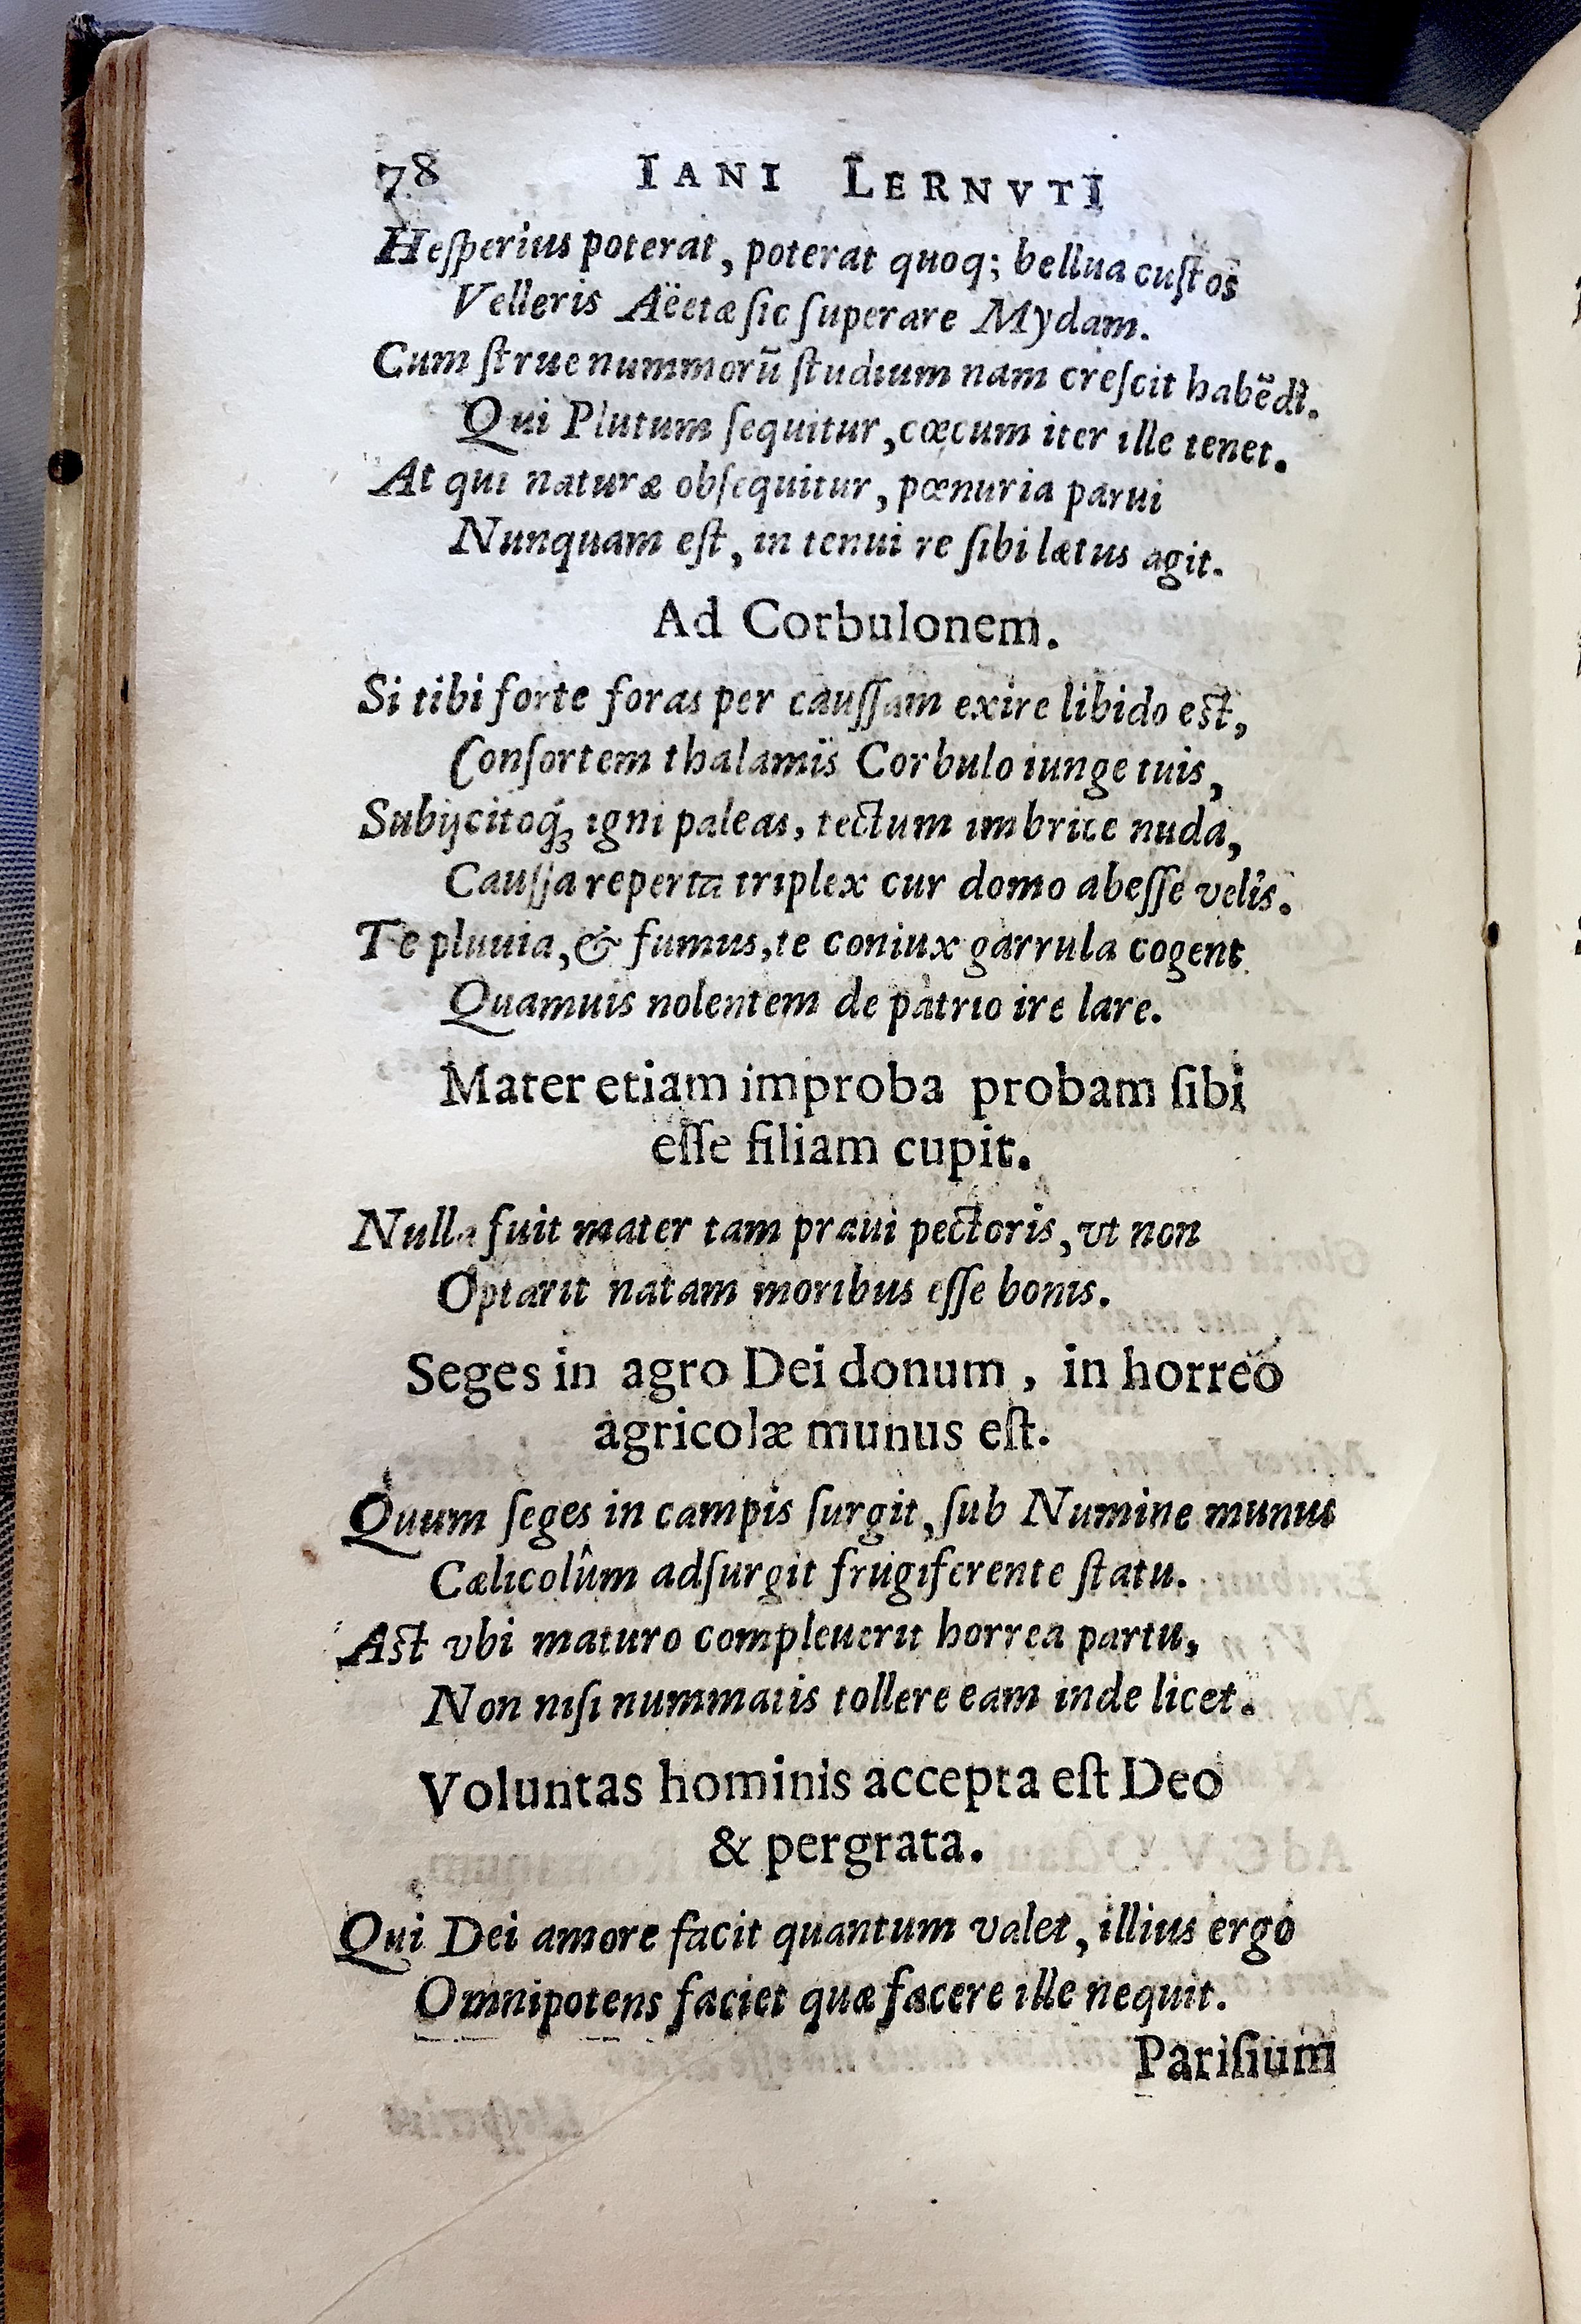 78 IANI LERNVTI
Heſperius poterat, poterat quoq; bellua cuſtos
Velleris Aëetæ ſic ſuperare Mydam.
Cum ſtrue nummorū ſtudium nam creſcit habēdi.
Qui Plutum ſequitur, cœcum iter ille tenet.
At qui naturæ obſequitur, pœnuria parui
Nunquam eſt, in tenui re ſibi lætus agit.
Ad Corbulonem.
Si tibi forte foras per cauſſam exire libido eſt,
Conſortem thalamis Corbulo iunge tuis,
Subijcitoq́ꝫ igni paleas, tectum imbrice nuda,
Cauſſa reperta triplex cur domo abeſſe velis.
Te pluuia, & fumus, te coniux garrula cogent
Quamuis nolentem de patrio ire lare.
Mater etiam improba probam ſibi
eſſe filiam cupit.
Nulla fuit mater tam praui pectoris, vt non
Optarit natam moribus eſſe bonis.
Seges in agro Dei donum, in horreo
agricolæ munus eſt.
Quum ſeges in campis ſurgit, ſub Numine munus
Cælicolûm adſurgit frugiferente ſtatu.
Aſt vbi maturo compleuerit horrea partu,
Non niſi nummatis tollere eam inde licet.
Voluntas hominis accepta eſt Deo
& pergrata.
Qui Dei amore facit quantum valet, illius ergo
Omnipotens faciet quæ facere ille nequit.
Pariſium